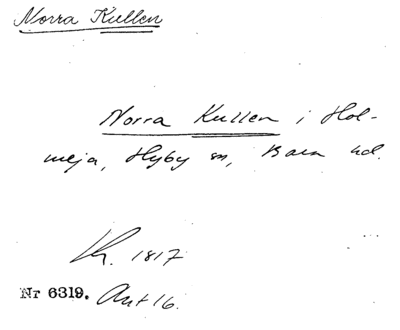 Norra Kullen
Norra Kullen i Hol-
meja, Hyby sn, Bara hd.
Kh. 1817
Nr 6319. Ant 16.